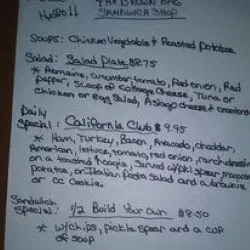 Hello!!
THE BROWN BAG
SANDWICH SHOP
SOUPS: Chicken Vegetable & Roasted Potatoe
Salad: Salad Plate $8.75
* Romaine, cucumber, tomato, Red onion, Red
Pepper, Scoop of Cottage Cheese, Tuna or
Chicken or Egg Salad, Asiago cheese & croutons
Daily
Special: California Club $9.95
* Ham, Turkey, Bacon, Avocado, cheddar,
American, lettuce, tomato, red onion, ranch dressing
on a toasted Hoagie, Served w/ pkl spear, macaroni,
potatoe, or Italian pasta Salad and a brownie
or CC Cookie.
Sandwich
Special: 1/2 Build Your Own $8.50
* w/chips, pickle spear and a cup
of soup